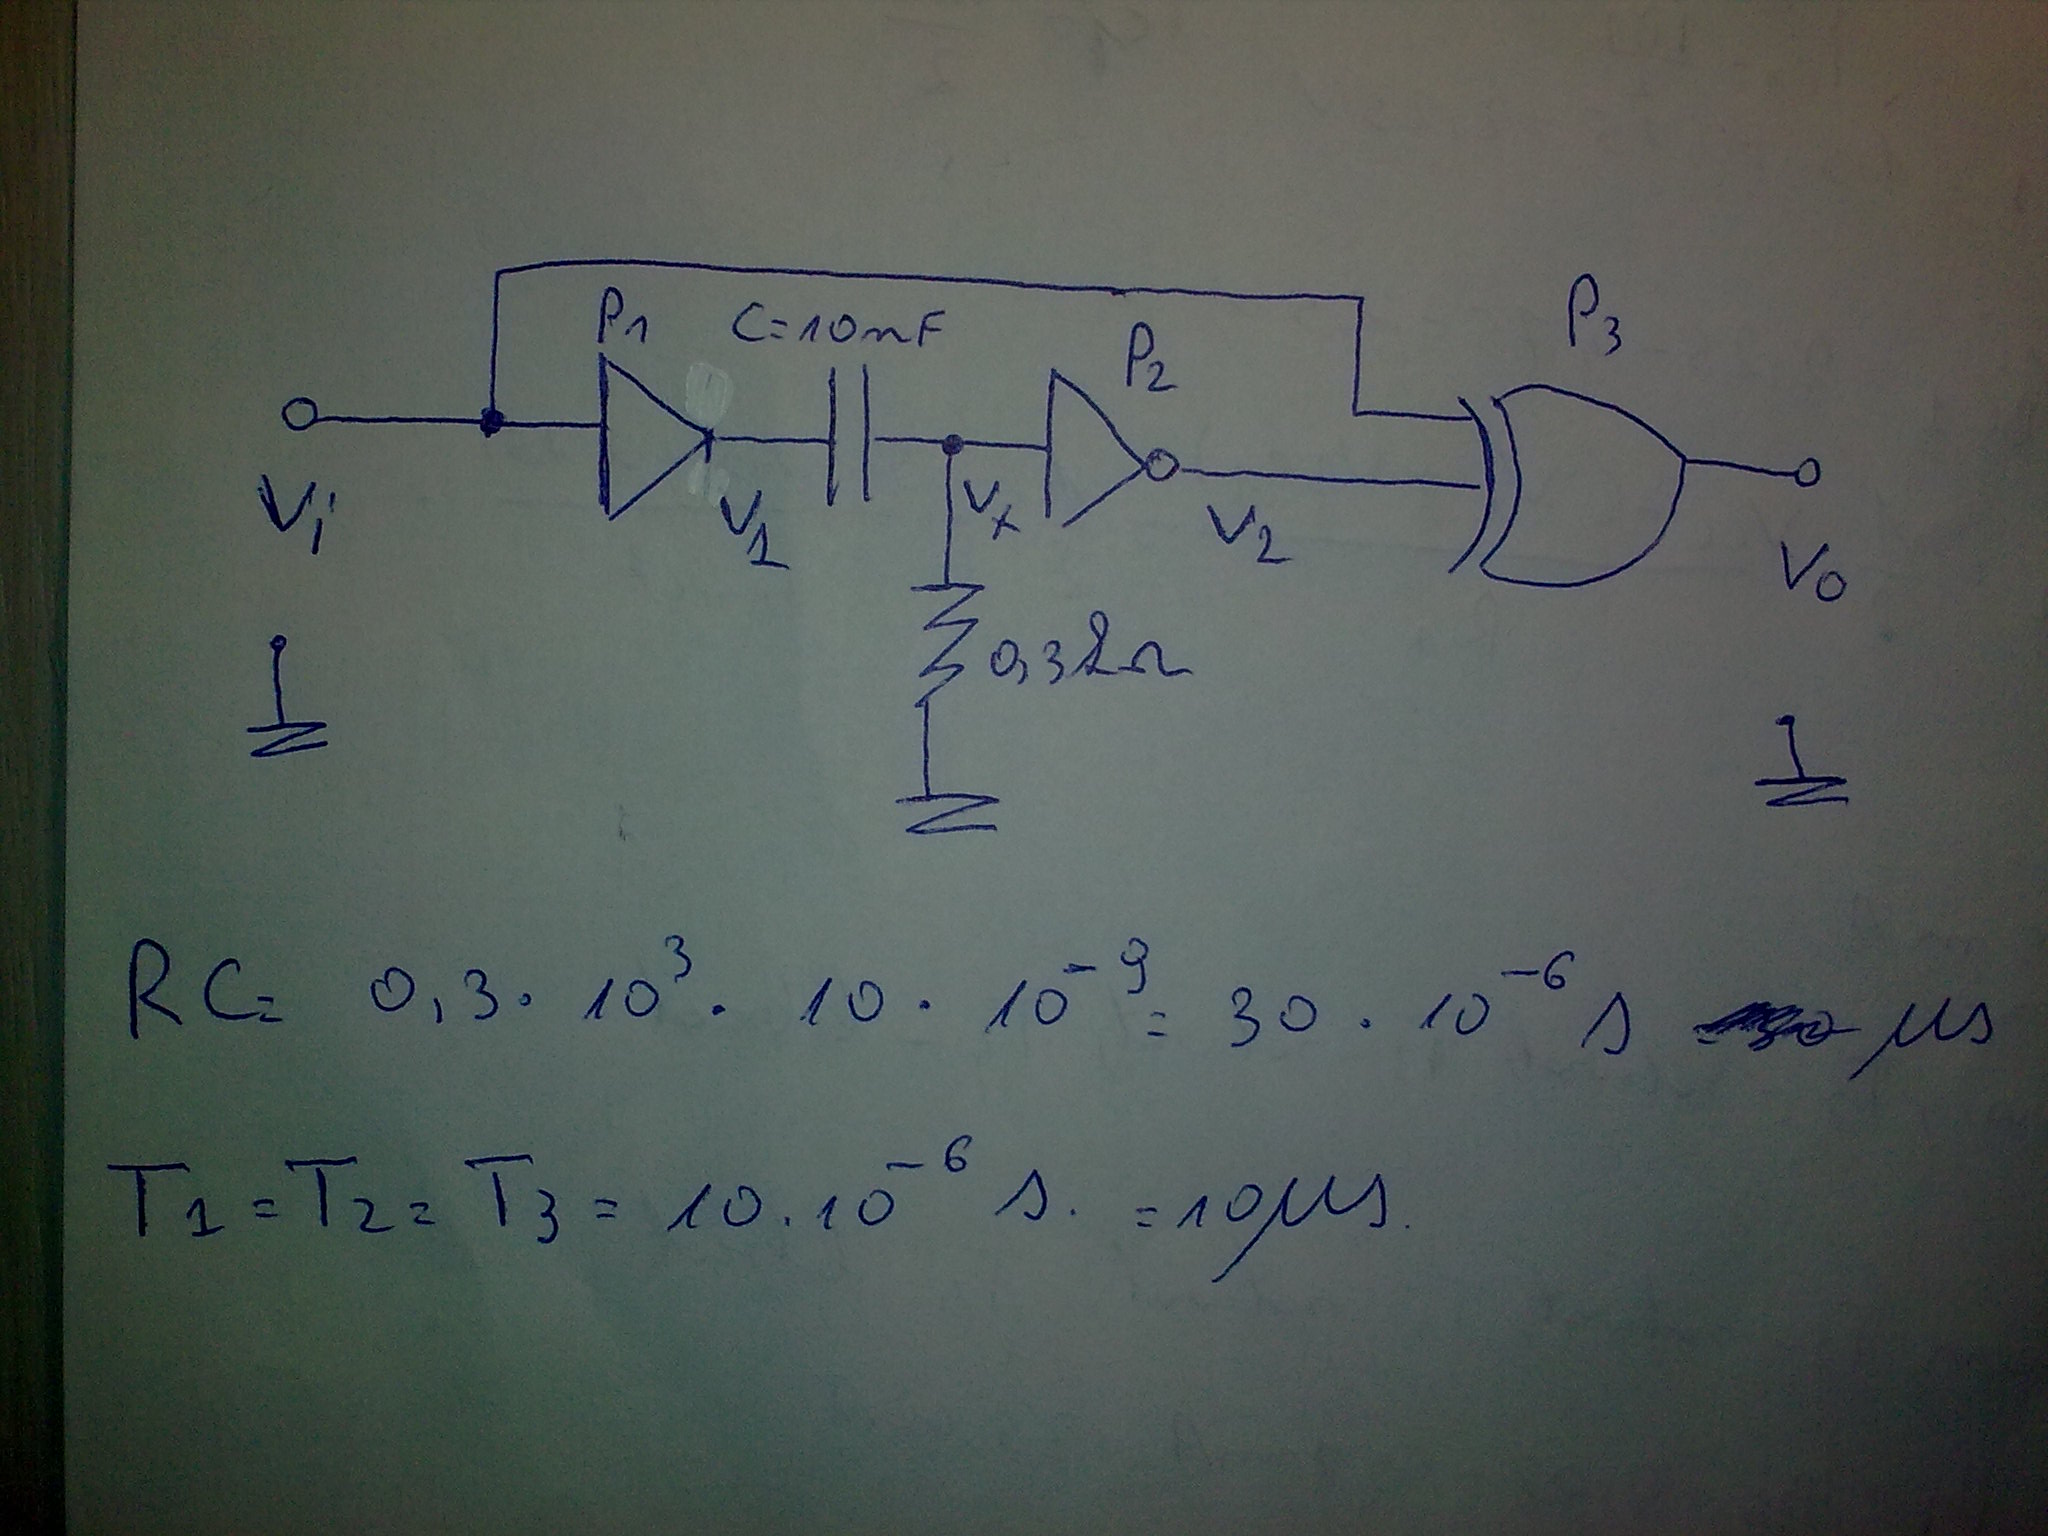 P1 C=10nF P2 P3
Vi V1 Vx V2 Vo
0,3kΩ
RC= 0,3 · 10³ · 10 · 10⁻⁹ = 30 · 10⁻⁶ s μs
T1 = T2 = T3 = 10 . 10⁻⁶ s. = 10μs.